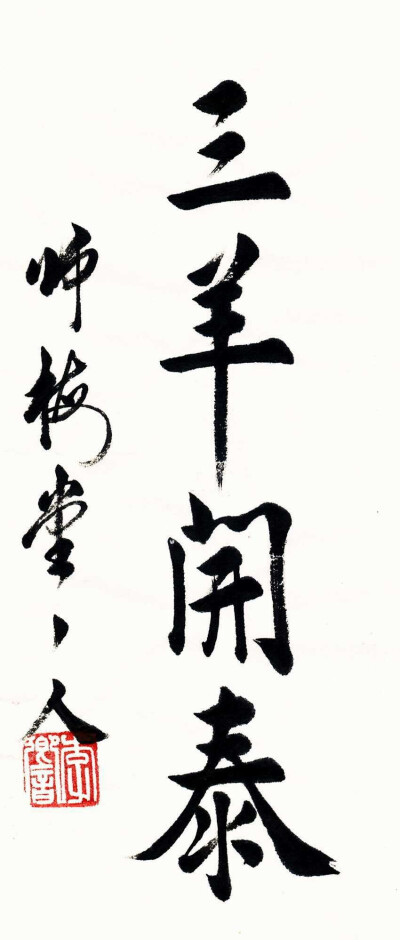 三羊開泰
师梅堂人